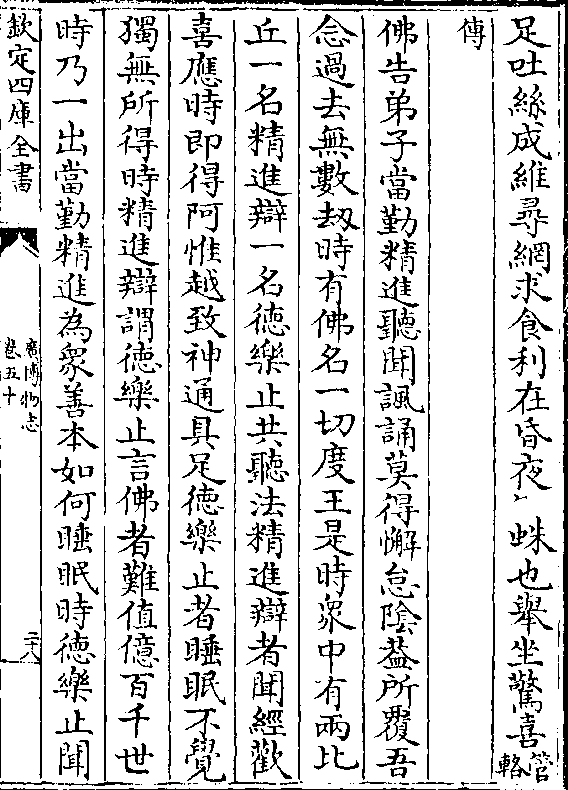 足吐絲成維尋網求食利在昏夜〻蛛也舉坐驚喜管輅
傳
佛告弟子當勤精進聽聞諷誦莫得懈怠陰葢所覆吾
念過去無數劫時有佛名一切度王是時衆中有兩比
丘一名精進辯一名德樂止共聽法精進辯者聞經歡
喜應時即得阿惟越致神通具足德樂止者睡眠不覺
獨無所得時精進辯謂德樂止言佛者難值億百千世
時乃一出當勤精進為衆善本如何睡眠時德樂止聞
欽定四庫全書
廣博物志
卷五十
二八